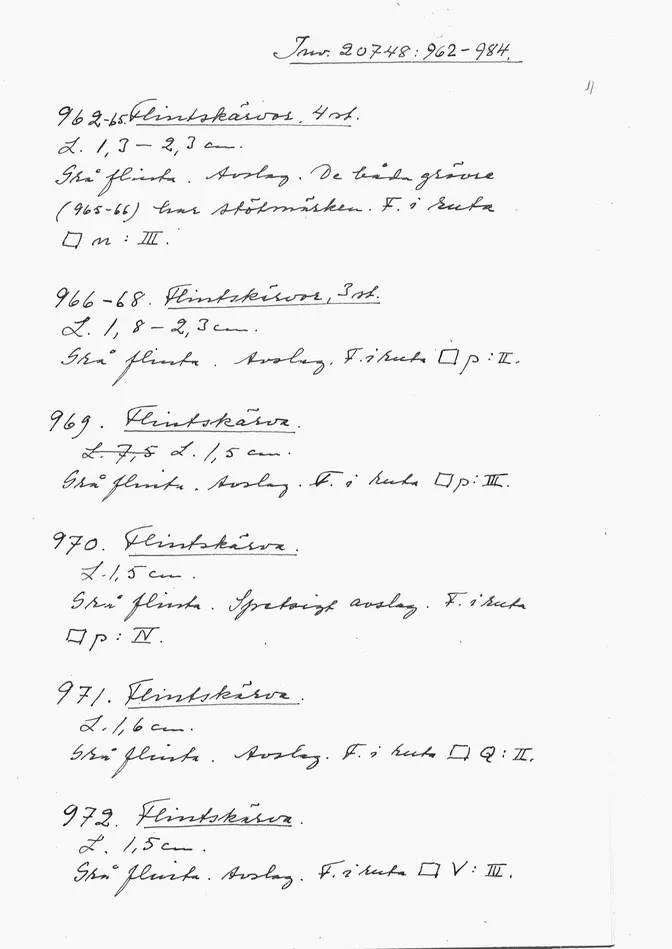 Inv. 20748:962-984.
962-65. Flintskärvor, 4 st.
L. 1,3 - 2,3 cm.
Grå flinta. Avslag. De båda grövre
(965-66) har stötmärken. F. i ruta
□ n : III.
966-68. Flintskärvor, 3 st.
L. 1,8 - 2,3 cm.
Grå flinta. Avslag. F. i ruta □ p : II.
969. Flintskärva.
L. 7,5 L. 1,5 cm.
Grå flinta. Avslag. F. i ruta □ p : III.
970. Flintskärva.
L. 1,5 cm.
Grå flinta. Spetsigt avslag. F. i ruta
□ p : IV.
971. Flintskärva.
L. 1,6 cm.
Grå flinta. Avslag. F. i ruta □ Q : II.
972. Flintskärva.
L. 1,5 cm.
Grå flinta. Avslag. F. i ruta □ V : III.